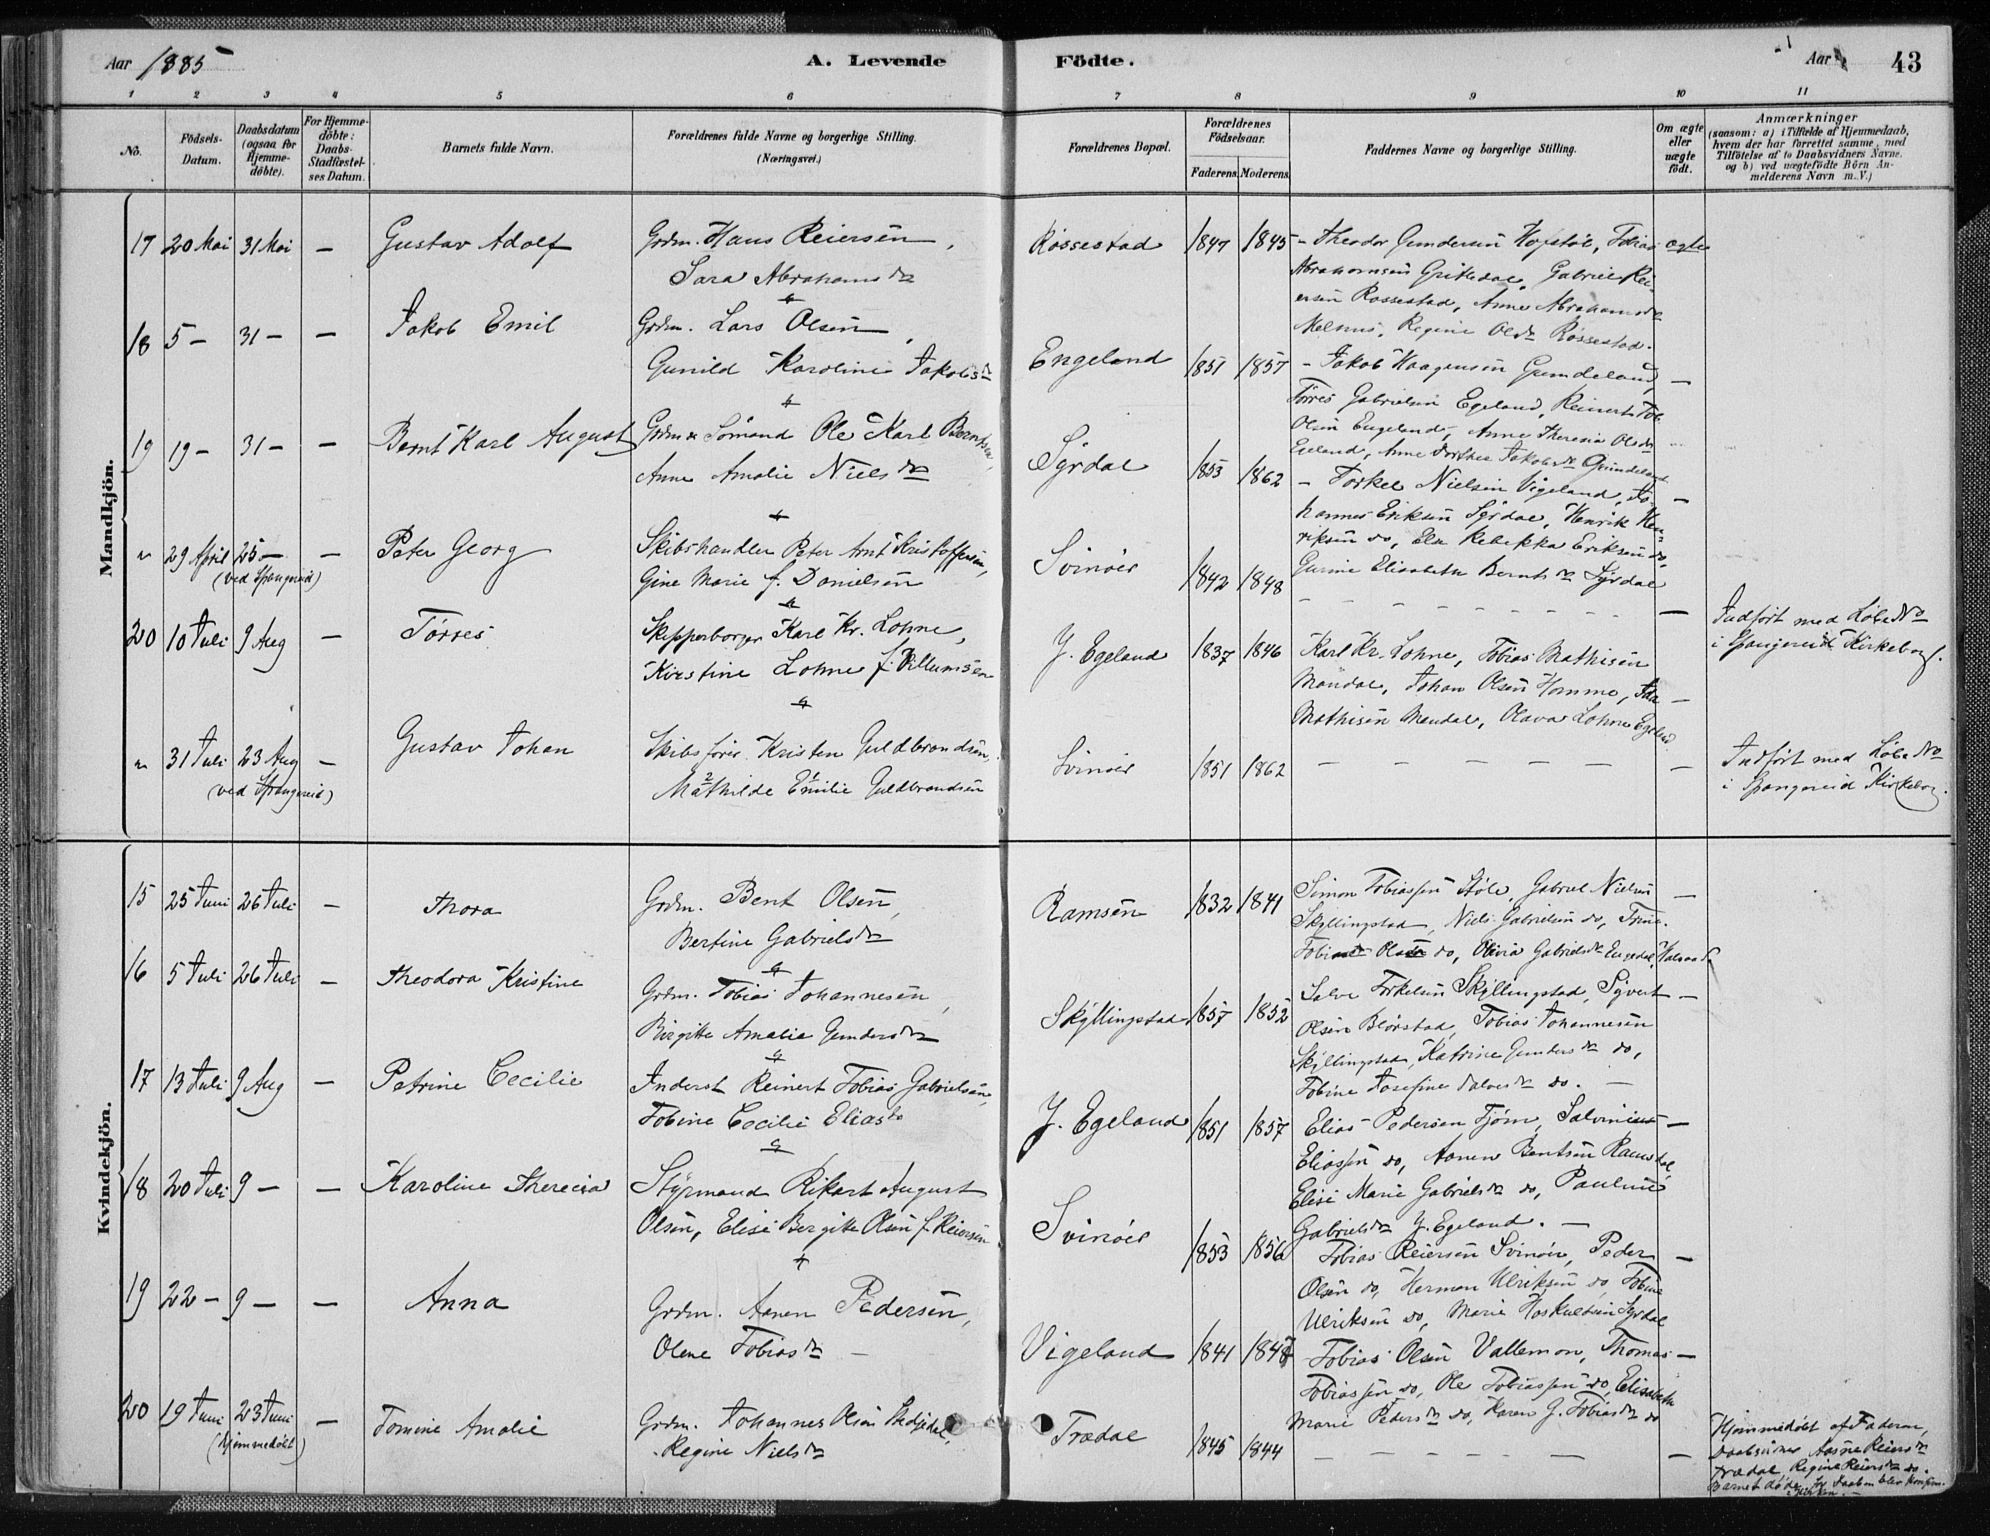 Aar 1885 A. Levende Födte. Aar 43
1 2 3 4 5 6 7 8 9 10 11
No.
Födsels-Datum.
Daabsdatum (ogsaa for Hjemme-döbte).
For Hjemme-döbte: Daabs-Stadfæstel-ses Datum.
Barnets fulde Navn.
Forældrenes fulde Navne og borgerlige Stilling.
(Næringsvei.)
Forældrenes Bopæl.
Forældrenes Födselsaar.
Faderens. Moderens.
Faddernes Navne og borgerlige Stilling.
Om ægte eller uægte födt.
Anmærkninger
(saasom: a) i Tilfælde af Hjemmedaab,
hvem der har forrettet samme, med
Tilföielse af to Daabsvidners Navne.
og b) ved uægtefödte Börn An-
melderens Navn m.V.)
Mandkjön.
17 20 Mai 31 Mai — Gustav Adolf Grdm. Hans Reiersen,
Sara Abrahamsdr
Røssestad 1847 1845 - Theodor Gundersen Hofstøl, Tobias ægte
Abrahamsen Grittedal, Gabriel Rei-
ersen Rossestad, Anne Abrahamsdr
Melhus, Regine Olsdr Røssestad.
18 5 — 31 — — Jakob Emil Grdm. Lars Olsen,
Gunild Karoline Jakobsdr
Engeland 1851 1857 - Jakob Haagensen Gundeland, —
Tørres Gabrielsen Egeland, Reinert Tob.
Olsen Engeland, Anne Theresia Olsdr
Egeland, Anne Dorthea Jakobsdr Gundeland
19 19 — 31 — — Bernt Karl August Grdm & Sömand Ole Karl Berntsen,
Anne Amalie Nielsdr
Syrdal 1853 1862 - Torkel Nielsen Vigeland, Jo- —
hannes Eriksen Syrdal, Henrik Hen-
riksen do, Else Rebekka Eriksen do,
Gurine Elisabeth Berntsdr Syrdal
" 29 April 25 — — Peter Georg Skibshandler Peter Arnt Kristoffersen,
(ved Spangereid) Gine Marie f. Danielsen
Svinöer 1842 1848 — — — — — — Indført med Løbe No
i Spangereid Kirkebog.
20 10 Juli 9 Aug — Tørres Skipperborger Karl Kr. Lohne,
Kirstine Lohne f. Villumsen
Y. Egeland 1837 1846 Karl Kr. Lohne, Tobias Mathisen
Mandal, Johan Olsen Homme, Ida —
Mathisen Mandal, Olava Lohne Egeland
" 31 Juli 23 Aug — Gustav Johan Skibsfører Kristen Guldbrandsen,
(ved Spangereid) Mathilde Emilie Guldbrandsen
Svinöer 1851 1862 — — — — — — Indført med Løbe No
i Spangereid Kirkebog.
Kvindekjön.
15 25 Juni 26 Juli — Thora Grdm. Bent Olsen,
Bertine Gabrielsdr
Ramsøn 1832 1841 Simon Tobiassen Støle, Gabriel Nielsen —
Skyllingstad, Niels Gabrielsen do, Trine
Olsen do, Olivia Gabrielsdr
16 5 Juli 26 Juli — Theodora Kristine Grdm. Tobias Johannesen,
Birgitte Amalie Gundersdr
Skyllingstad 1857 1852 Salve Torkelsen Skyllingstad, Syvert —
Olsen Blørstad, Tobias Johannesen
Skyllingstad, Katrine Gundersdr do,
Tobine Josefine Salvesdr do. —
17 13 Juli 9 Aug — Petrine Cecilie Inderst Reinert Tobias Gabrielsen,
Tobine Cecilie Eliasdr
Y. Egeland 1851 1857 Elias Pedersen Tjøm, Salvinius —
Eliassen do, Aanen Bentsen Ramsdal,
Elise Marie Gabrielsdr do, Pauline
Gabrielsdr Y. Egeland. —
18 20 Juli 9 — — Karoline Therecia Styrmand Rikart August
Olsen, Elise Bergitte Olsen f. Reiersen
Svinöer 1853 1856 Tobias Reiersen Svinöer, Peder —
Olsen do, Herman Ulriksen do, Tobine
Ulriksen do, Marie Hoskuldsen Syrdal
19 22 — 9 — — Anna Grdm. Aanen Pedersen,
Olene Tobiasdr —
Vigeland 1841 184 Tobias Olsen Vallemon, Thomas —
Tobiassen do, Ole Tobiassen do, Elisabeth
Marie Pedersdr do, Karen G. Tobiasdr do
20 19 Juni 23 Juni — Tomine Amalie Grdm. Johannes Olsen
(Hjemmedöbt) Regine Nielsdr
Trædal 1845 1844 — — — — — — Hjemmedöbt af Faderen,
Daabsvidner Aasne Reiersdr
Trædal Regine Reiersdr do.
Barnet døde før Daaben blev konfirm.
i Kirken. —